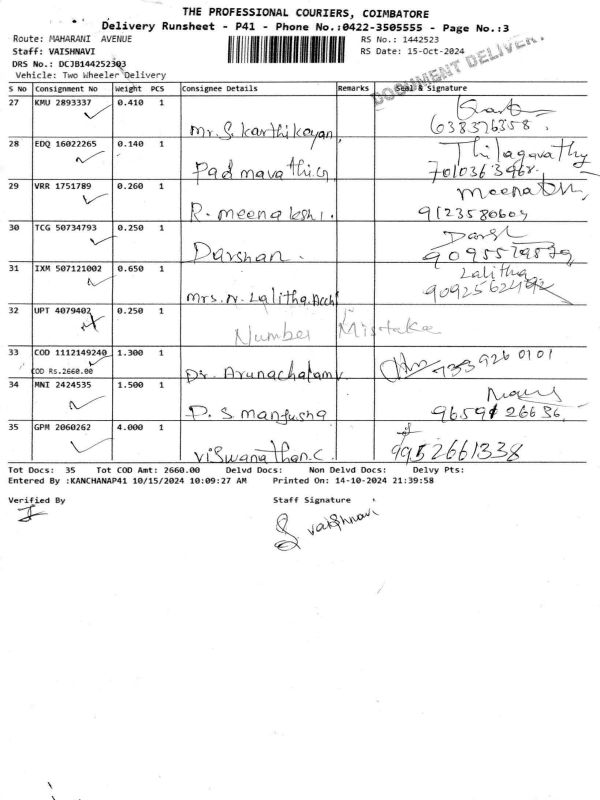 THE PROFESSIONAL COURIERS, COIMBATORE
Delivery Runsheet - P41 - Phone No.:0422-3505555 - Page No.:3
Route: MAHARANI AVENUE RS No.: 1442523
Staff: VAISHNAVI RS Date: 15-Oct-2024
DRS No.: DCJB144252303
Vehicle: Two Wheeler Delivery
DOCUMENT DELIVERY
S No Consignment No Weight PCS Consignee Details Remarks Seal & Signature
27 KMU 2893337 0.410 1 Mr. S. Karthikayan,
28 EDQ 16022265 0.140 1 Padmavathi.G Thilagavathy
29 VRR 1751789 0.260 1 R. meenakshi. 9123580609
30 TCG 50734793 0.250 1 Darshan.
31 IXM 507121002 0.650 1 Mrs. N. Lalitha. Lalitha
32 UPT 4079402 0.250 1 Number Mistake
33 COD 1112149240 1.300 1 Dr. Arunachalam 7339260101
COD Rs.2660.00
34 MNI 2424535 1.500 1 D. S. manjusha
35 GPM 2060262 4.000 1 Viswanathan.C. 9952661338
Tot Docs: 35 Tot COD Amt: 2660.00 Delvd Docs: Non Delvd Docs: Delvy Pts:
Entered By :KANCHANAP41 10/15/2024 10:09:27 AM Printed On: 14-10-2024 21:39:58
Verified By Staff Signature
vaishnavi